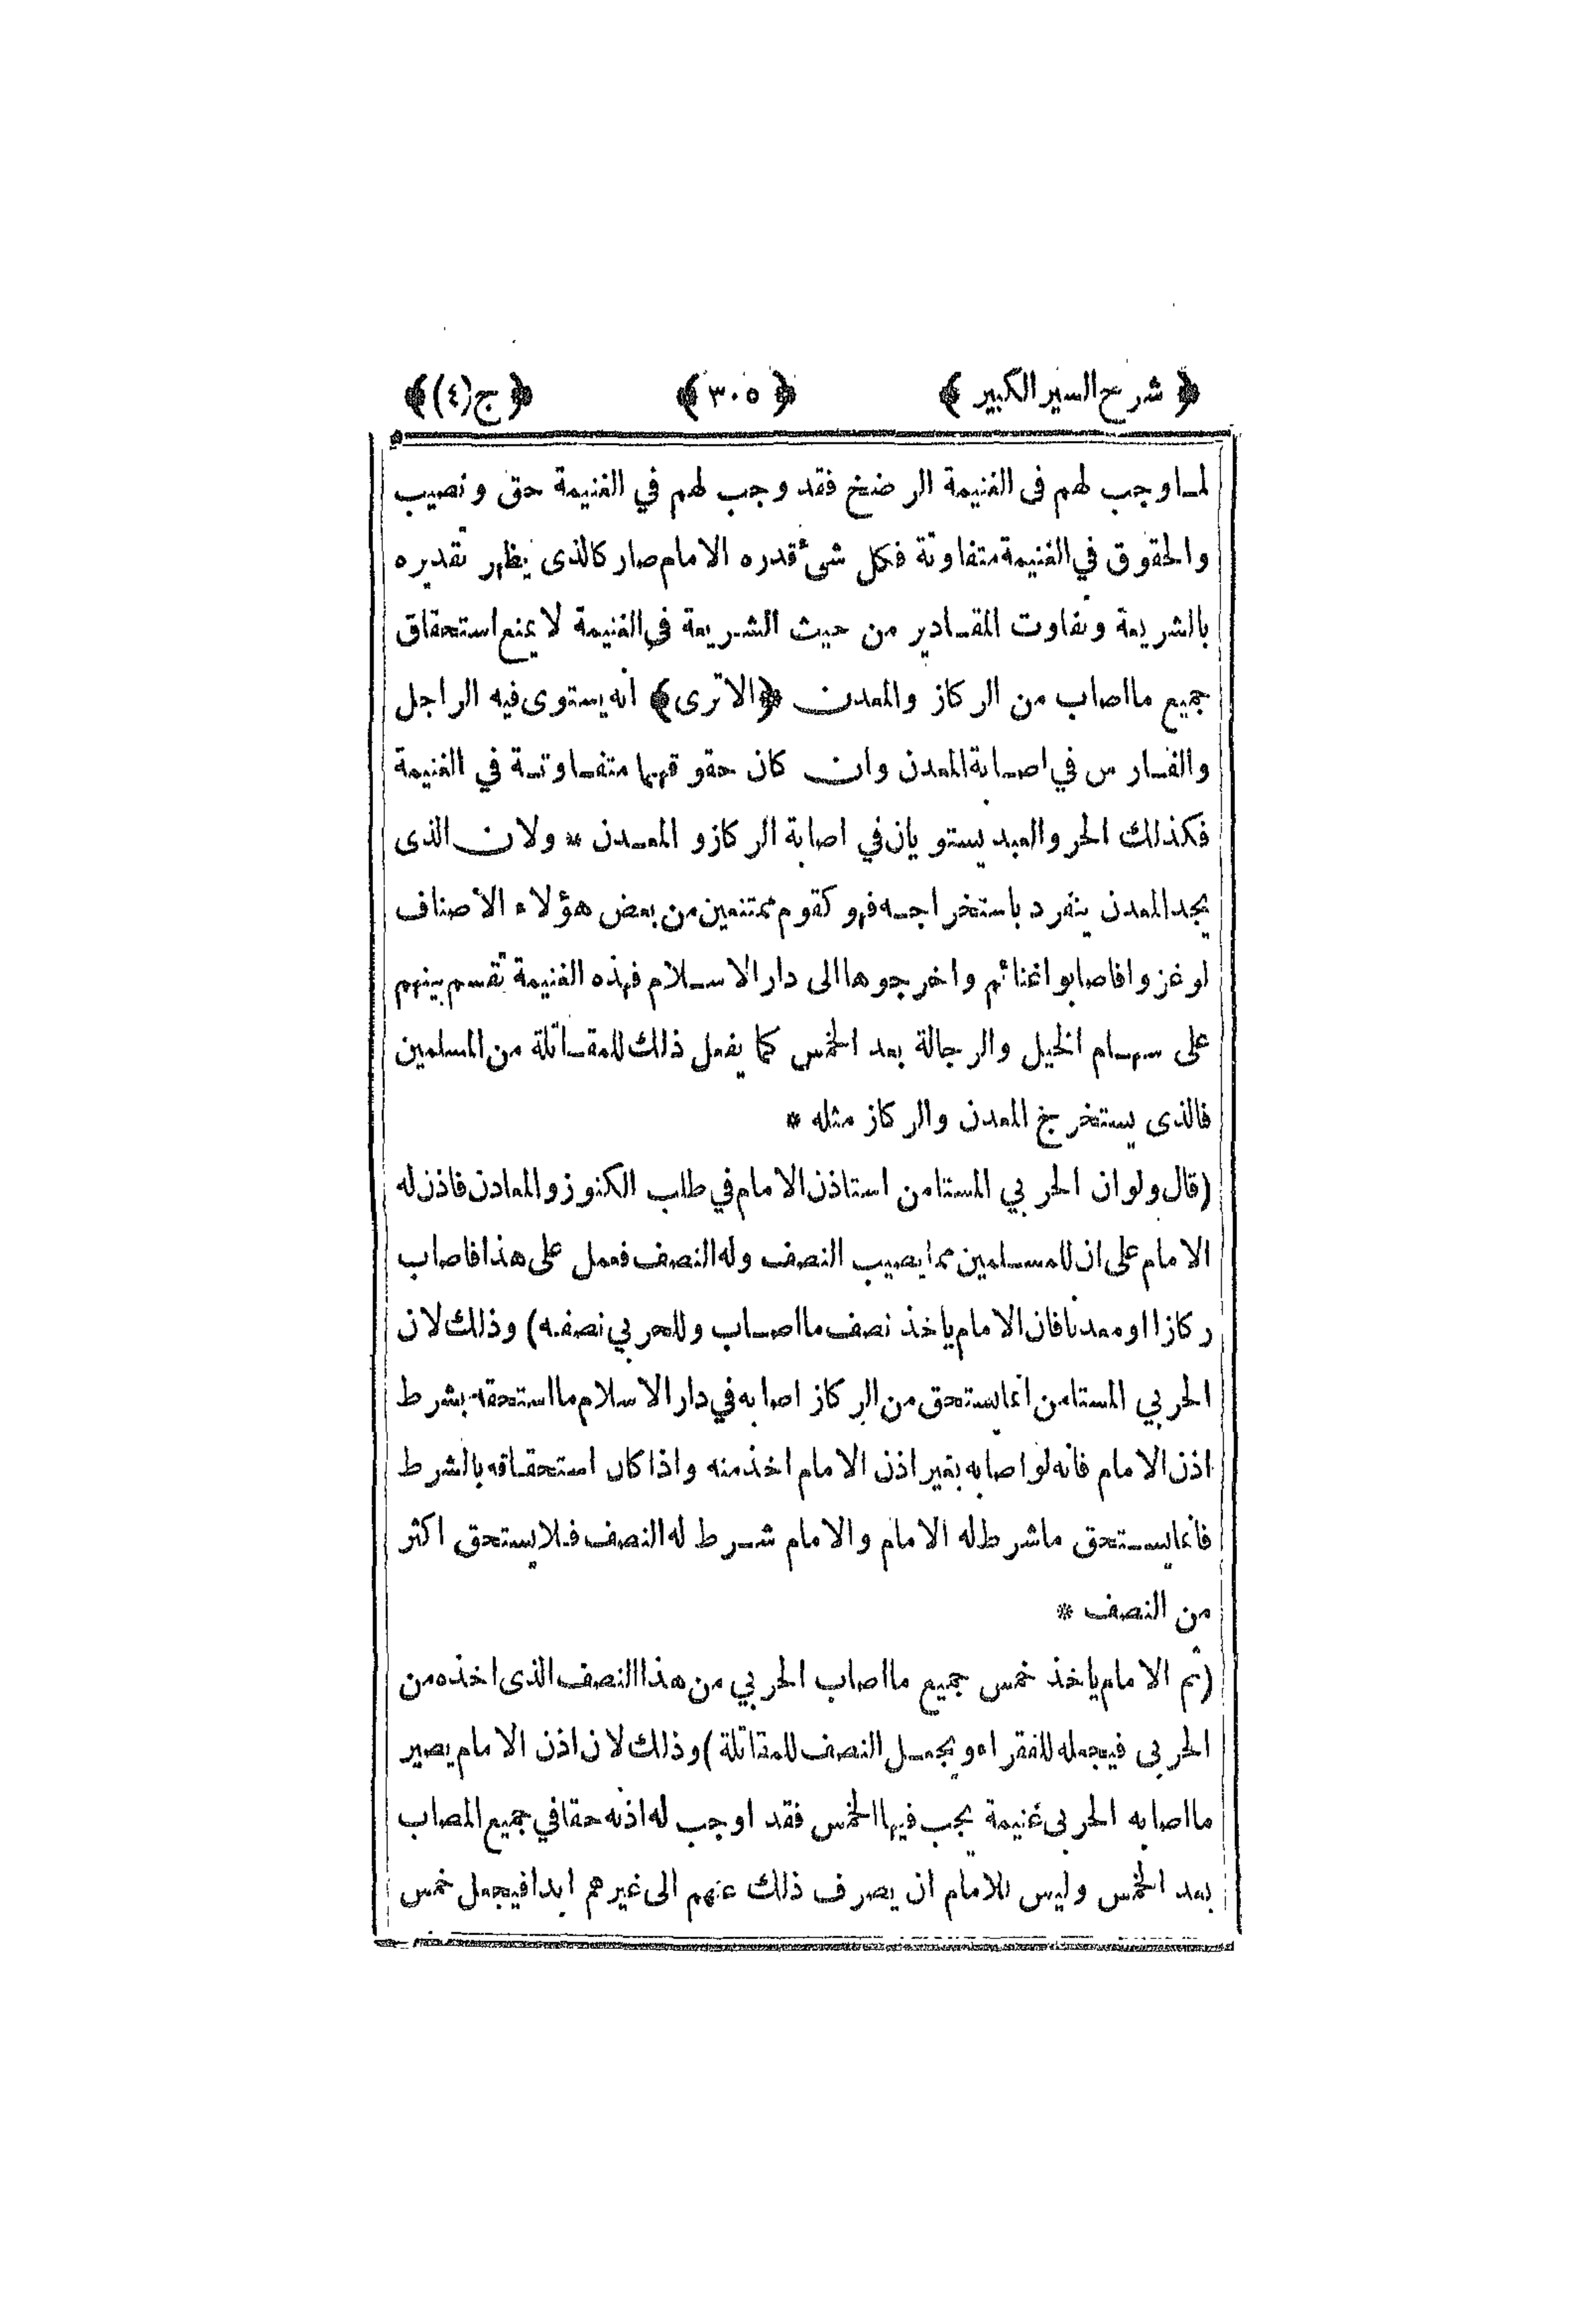 ﴿ شرح السير الكبير ﴾ ﴿ ٣٠٥ ﴾ ﴿ ج (٤) ﴾
لما وجب لهم فى الغنيمة الرضخ فقد وجب لهم في الغنيمة حق ونصيب
والحقوق في الغنيمة متفاوتة فكل شئ قدره الامام صار كالذى يظهر تقديره
بالشريعة وتفاوت المقادير من حيث الشريعة في الغنيمة لا يمنع استحقاق
جميع ما اصاب من الركاز والمعدن ﴿الا ترى﴾ انه يستوى فيه الراجل
والفارس في اصابة المعدن وان كان حقوقهما متفاوتة في الغنيمة
فكذلك الحر والعبد يستويان في اصابة الركاز والمعدن * ولان الذى
يجد المعدن ينفرد باستخراجه فهو كقوم ممتنعين من بعض هؤلاء الأصناف
لو غزوا فاصابوا غنائم واخرجوها الى دار الاسلام فهذه الغنيمة تقسم بينهم
على سهام الخيل والرجالة بعد الخمس كما يفعل ذلك للمقاتلة من المسلمين
فالذى يستخرج المعدن والركاز مثله *
(قال ولو ان الحربي المستامن استاذن الامام في طلب الكنوز والمعادن فاذن له
الامام على ان للمسلمين مما يصيب النصف وله النصف فعمل على هذا فاصاب
ركازا او معدنا فان الامام ياخذ نصف ما اصاب وللحربي نصفه) وذلك لان
الحربي المستامن انما يستحق من الركاز اصابه في دار الاسلام ما استحقه بشرط
اذن الامام فانه لو اصابه بغير اذن الامام اخذ منه واذا كان استحقاقه بالشرط
فانما يستحق ما شرط له الامام والامام شرط له النصف فلا يستحق اكثر
من النصف *
(ثم الامام ياخذ خمس جميع ما اصاب الحربي من هذا النصف الذى اخذه من
الحربى فيجعله للفقراء ويجعل النصف للمقاتلة) وذلك لان اذن الامام يصير
ما اصابه الحربى غنيمة يجب فيها الخمس فقد اوجب له اذنه حقا في جميع المصاب
بعد الخمس وليس للامام ان يصرف ذلك عنهم الى غيرهم ابدا فيجعل خمس